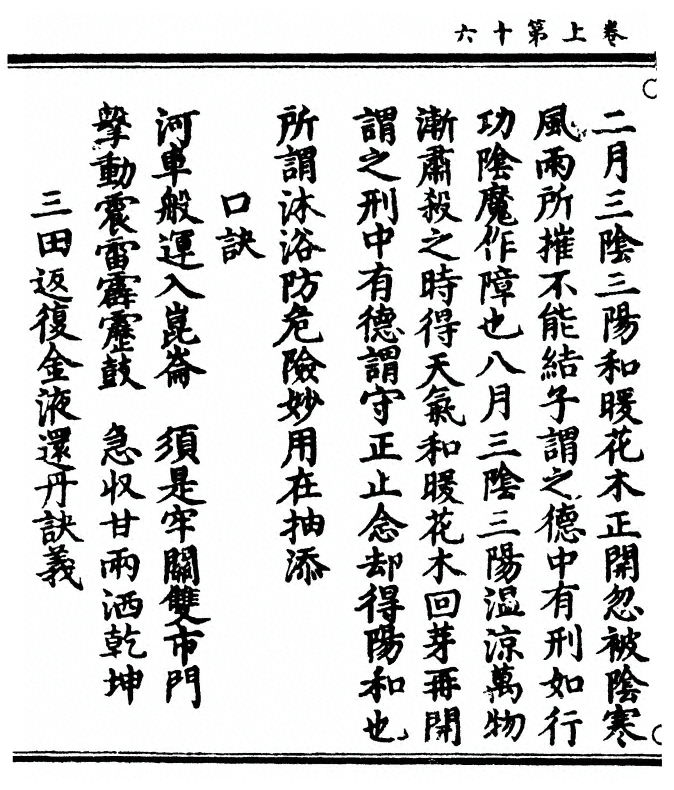 卷上第十六
二月三陰三陽和暖花木正開忽被陰寒
風雨所摧不能結子謂之德中有刑如行
功陰魔作障也八月三陰三陽溫涼萬物
漸肅殺之時得天氣和暖花木回芽再開
謂之刑中有德謂守正止念却得陽和也
所謂沐浴防危險妙用在抽添
口訣
河車般運入崑崙　須是牢關雙市門
擊動震雷霹靂鼓　急収甘雨洒乾坤
三田返復金液還丹訣義